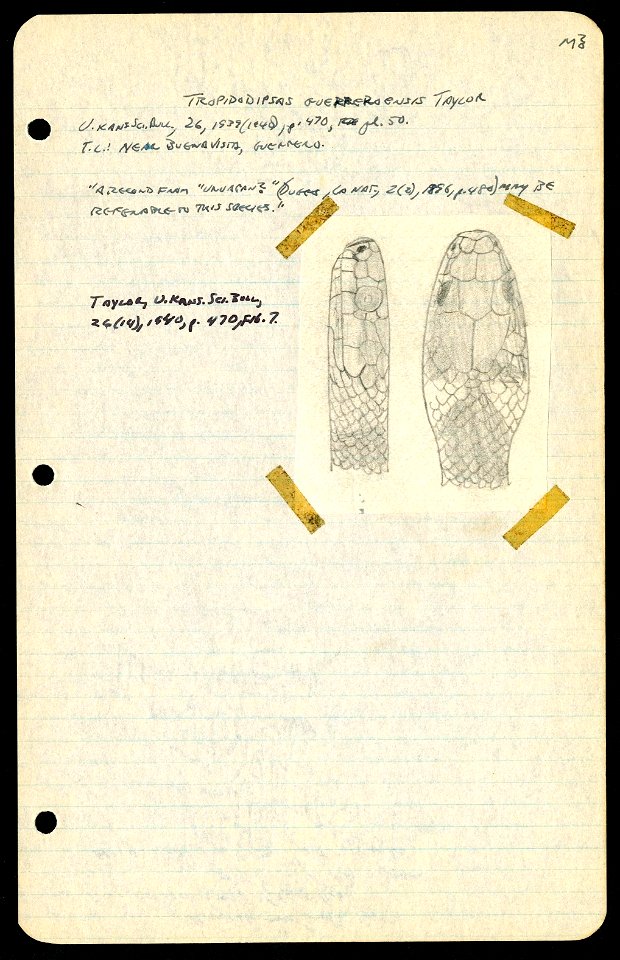 TROPIDODIPSAS GUERREROENSIS TAYLOR
U. KANS. SCI. BULL, 26, 1939(1940), p. 470, pl. 50.
T.L.: NEAR BUENAVISTA, GUERRERO.
"A RECORD FROM (DUGES, LA NAT, 2(2), 1896, p. 480) MAY BE
REFERABLE TO THIS SPECIES."
TAYLOR, U. KANS. SCI. BULL,
26(14), 1940, p. 470, FIG. 7.